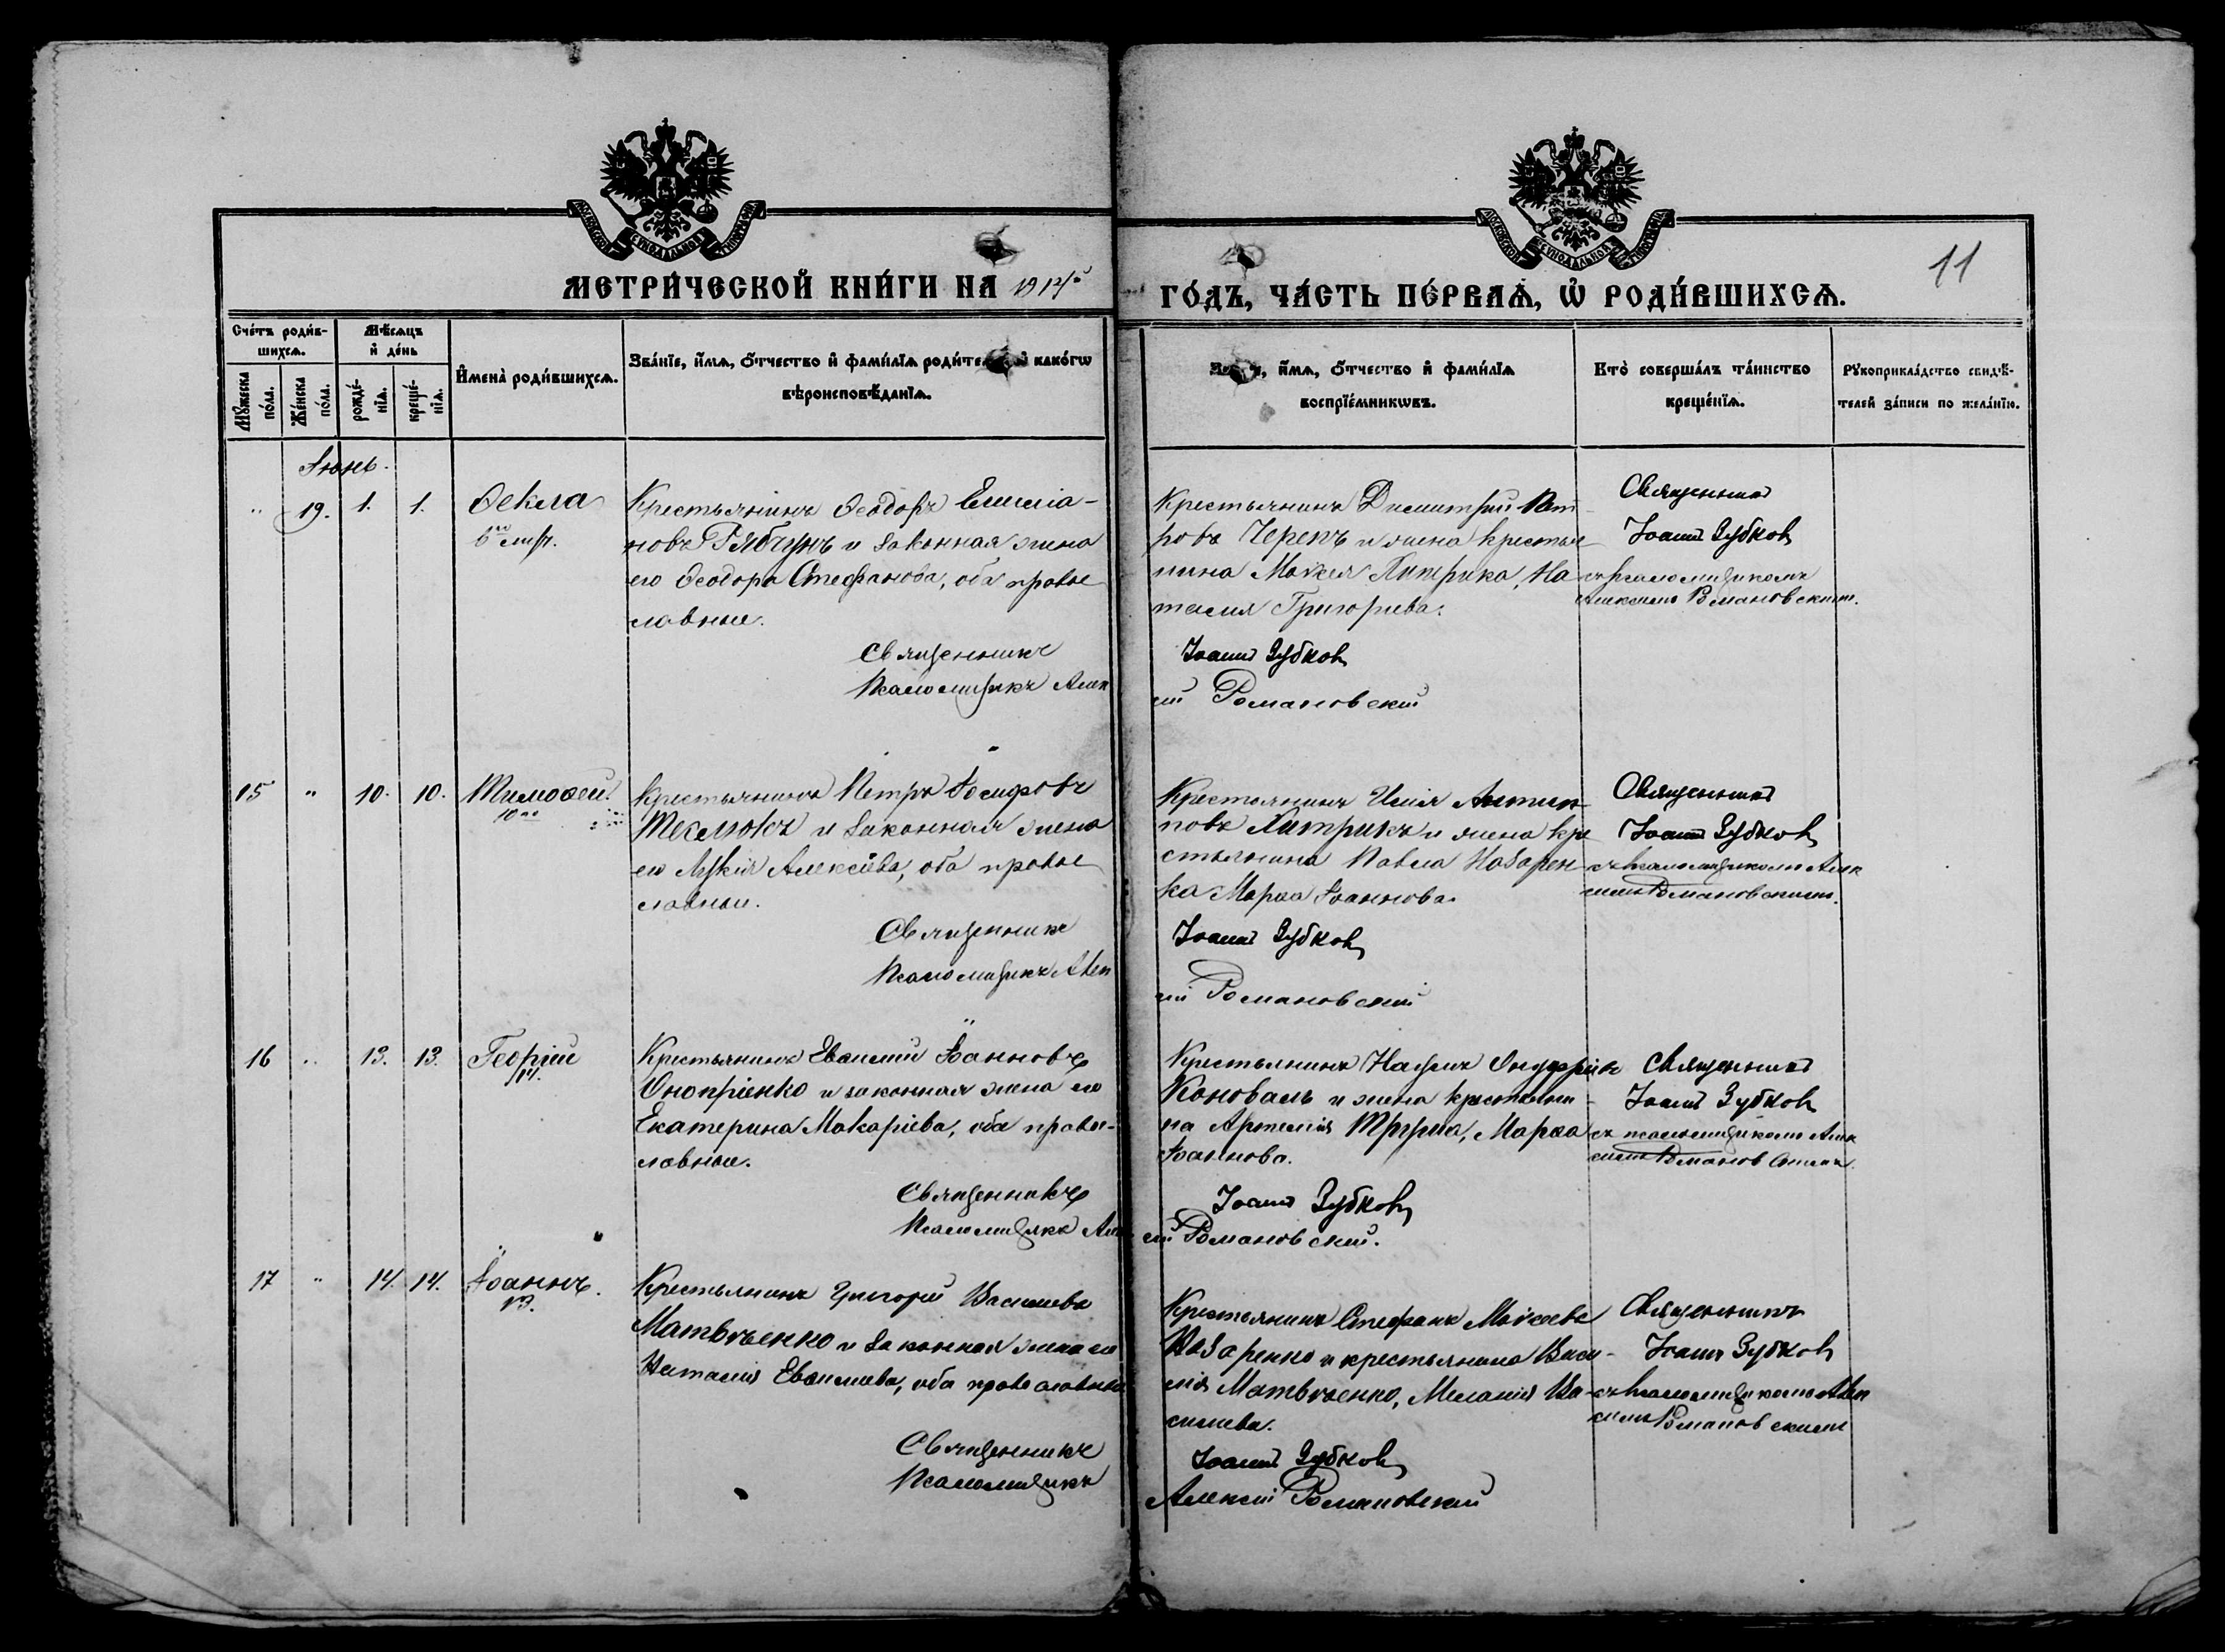 11
МЕТРИ́ЧЕСКОЙ КНИ́ГИ НА 1914 ГО́ДЪ, ЧА́СТЬ ПЕ́РВАѦ, Ѡ РОДИ́ВШИХСѦ.
Сче́тъ роди́в-
шихсѧ.
Мꙋжеска по́ла.
Же́нска по́ла.
Мѣ́сѧцъ и де́нь
рожде́-
нїѧ.
креще́-
нїѧ.
Имена̀ роди́вшихсѧ.
Зва́нїе, и́мѧ, о́тчество и фами́лїѧ роди́те и како́гѡ
вѣроисповѣ́данїѧ.
и́мѧ, о́тчество и фами́лїѧ
воспрїе́мникѡвъ.
Кто̀ соверша́лъ та́инство
креще́нїѧ.
Рꙋкоприкла́дство свидѣ́-
телей за́писи по жела́нїю.
Іюнь.
" 19. 1. 1. Ѳекла
Крестьянинъ Ѳеодоръ Емилiа-
новъ Рябчунъ и законная жена
его Ѳеодора Стефанова, оба право
славные.
Священникъ
Псаломщикъ Алек
Крестьянинъ Димитрий Пет
ровъ Черепъ и жена крестья
нина Моисея Хитрика, На
талия Григорьева.
Іоаннъ Зубковъ
сій Романовский
Священникъ
Іоаннъ Зубковъ
съ псаломщикомъ
Алексіемъ Романовскимъ.
15 " 10. 10. Тимоѳей.
Крестьянинъ Петръ Іосифовъ
и законная жена
его Лукія Алексіева, оба право
славные.
Священникъ
Псаломщикъ Алек
Крестьянинъ Илія Антип
повъ Хитрикъ и жена кре
стьянина Павла Назарен
ка Марѳа Іоаннова.
Іоаннъ Зубковъ
сій Романовский
Священникъ
Іоаннъ Зубковъ
съ псаломщикомъ Алек
сіемъ Романовскимъ.
16 " 13. 13. Георгій
14.
Крестьянинъ Евѳимій Іоанновъ
Онопріенко и законная жена его
Екатерина Макаріева, оба право-
славные.
Священникъ
Псаломщикъ Алек
Крестьянинъ Наумъ Онуфріевъ
Коноваль и жена крестьяни-
на Артемія Марѳа
Іоаннова.
Іоаннъ Зубковъ
сій Романовский.
Священникъ
Іоаннъ Зубковъ
съ псаломщикомъ Алек
сіемъ Романовскимъ.
17 " 14. 14. Іоаннъ.
13.
Крестьянинъ Григорій Васильевъ
Матвѣенко и законная жена его
Наталія Евѳиміева, оба православные
Священникъ
Псаломщикъ
Крестьянинъ Стефанъ Моисеевъ
Назаренко и крестьянина Васи-
лія Матвѣенко, Меланія Ва-
сильева.
Іоаннъ Зубковъ
Алексій Романовский
Священникъ
Іоаннъ Зубковъ
съ псаломщикомъ Алек
сіемъ Романовскимъ